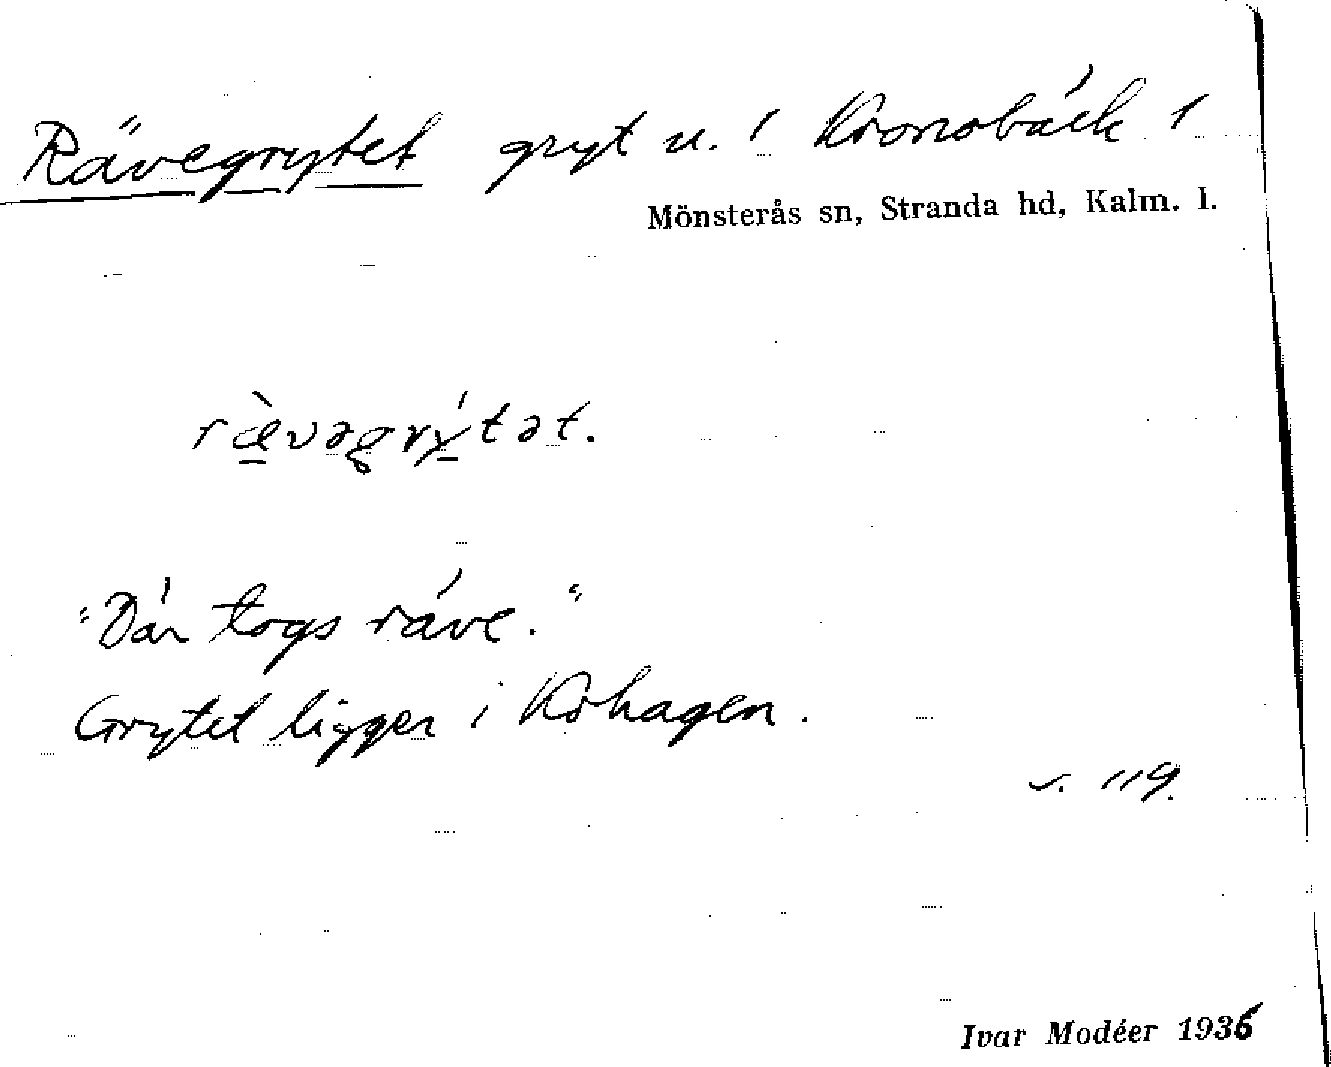 Rävegrytet gryt u. 1 Kronobäck 1
Mönsterås sn, Stranda hd, Kalm. l.
rævəgrytət.
"Där togs räve."
Grytet ligger i Kohagen.
s. 119.
Ivar Modéer 1936